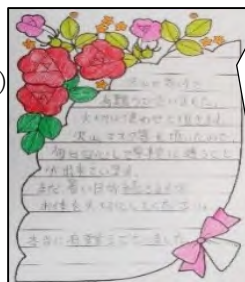 有難うございました。
大切に使わせて頂きます。
沢山マスク等も頂いたので
毎日安心して学校に通うこと
が出来ています。
まだ暑い日が続きますが
お体を大切にしてください。
本当に有難うございました